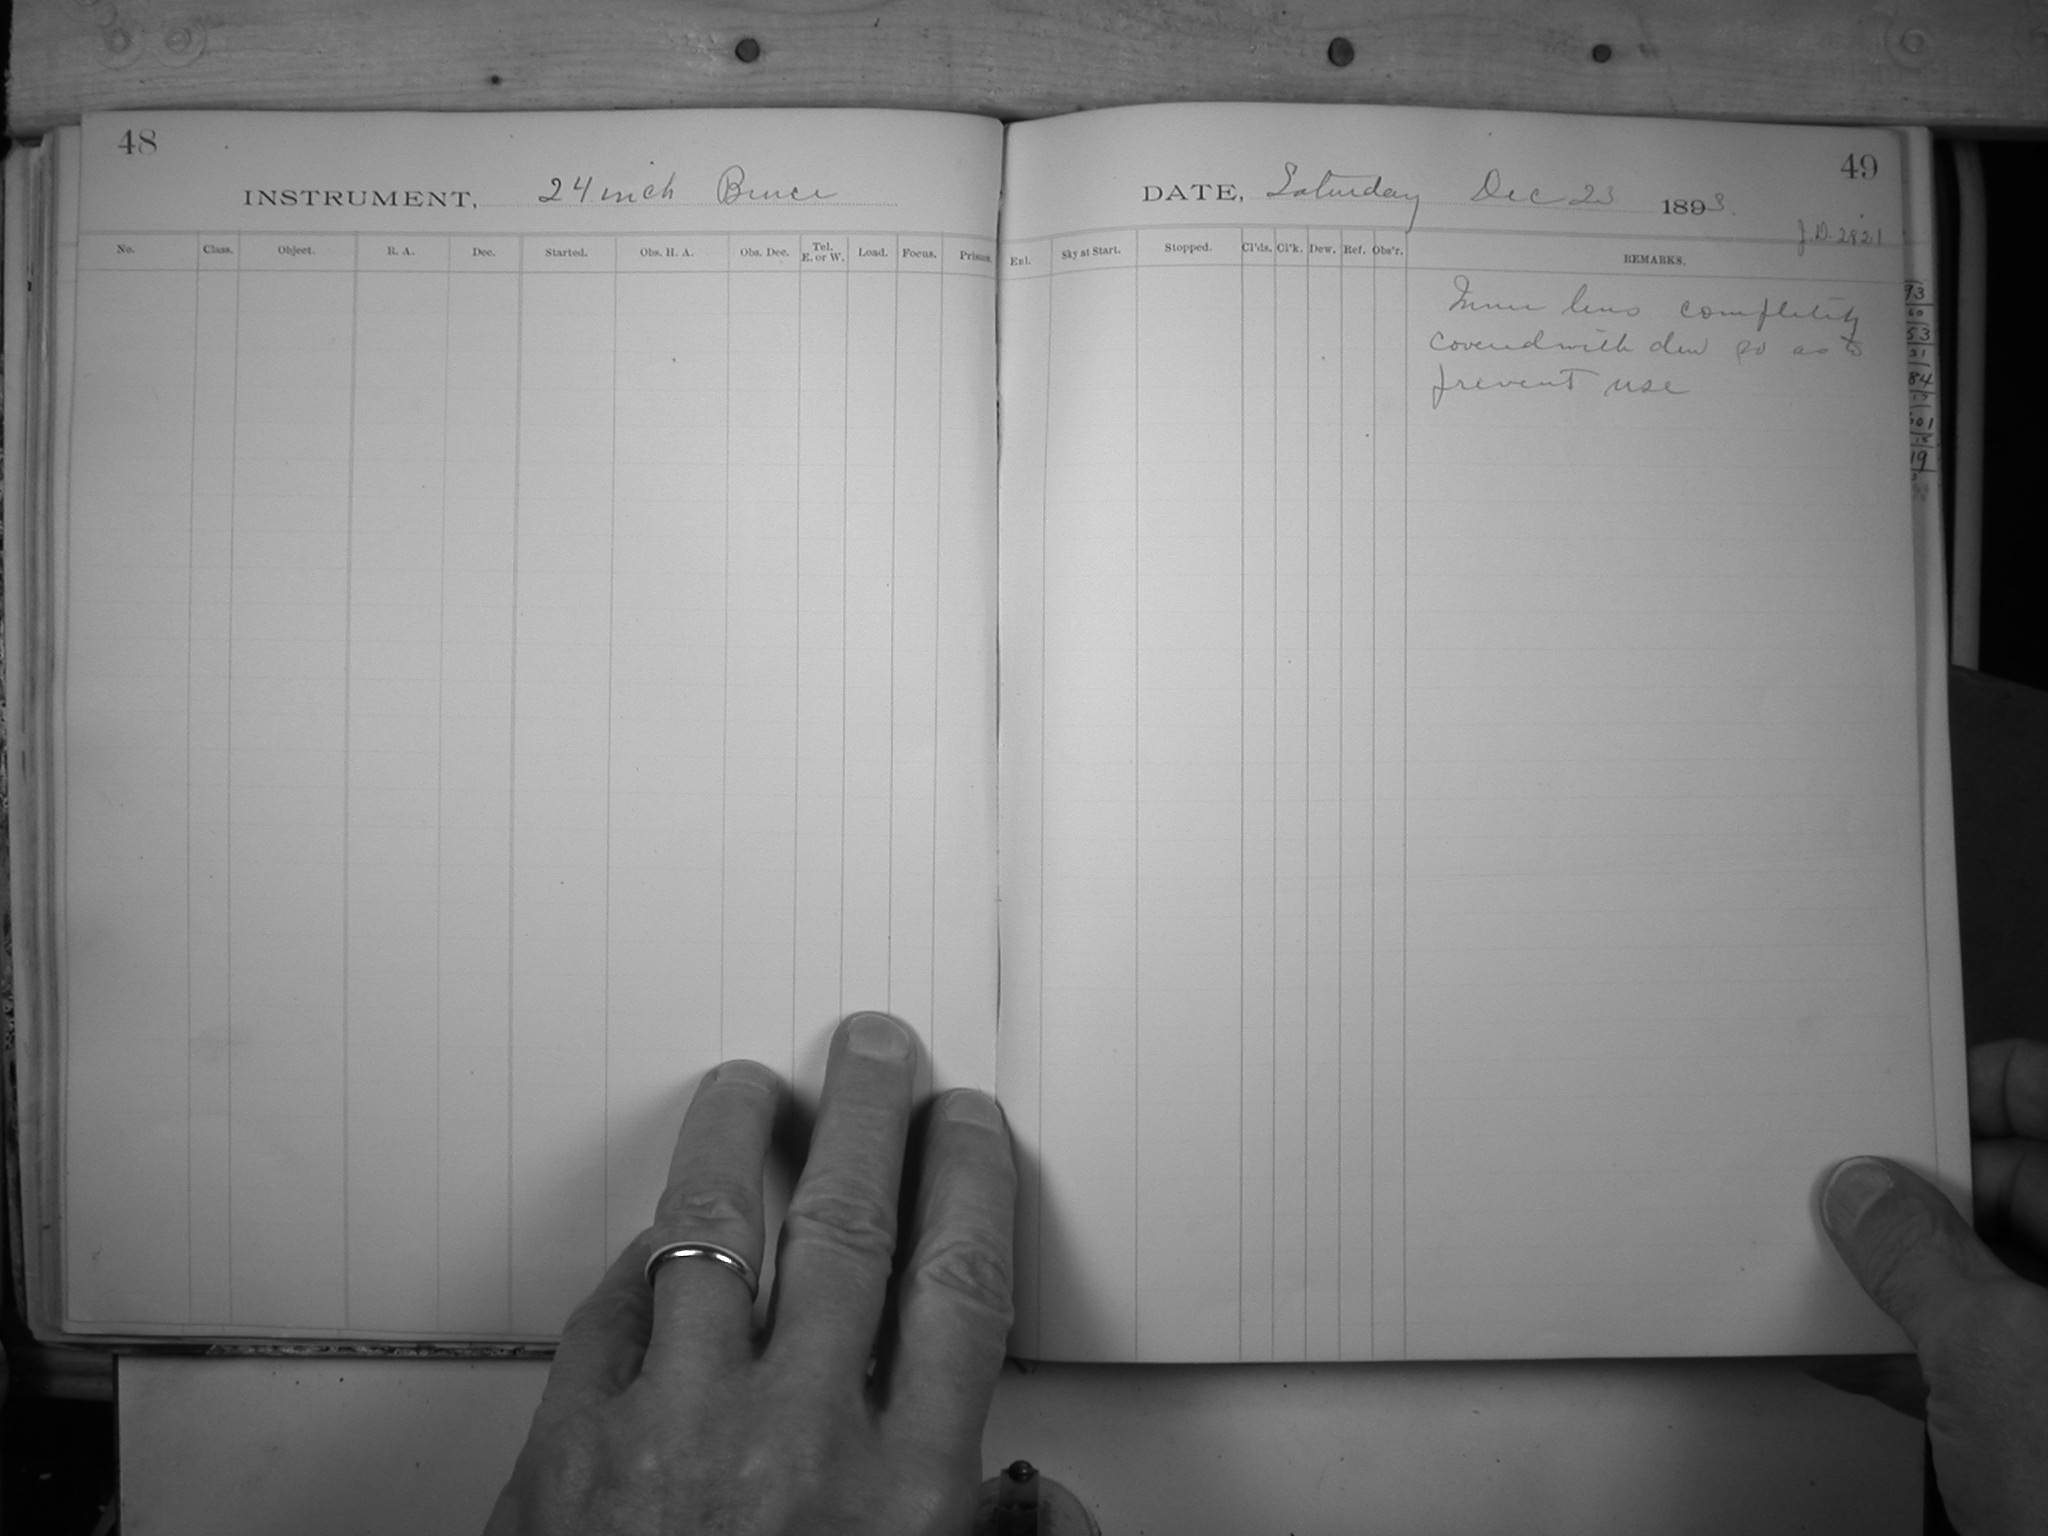 48
INSTRUMENT, 24 inch Bruce
No. Class. Object. R. A. Dec. Started. Obs. H. A. Obs. Dec. Tel. E. or W. Load. Focus. Prisms.
49
DATE, Saturday Dec 23 1893.
J.D. 2821
Enl. Sky at Start. Stopped. Cl'ds. Cl'k. Dew. Ref. Obs'r. REMARKS.
Inner lens completely
covered with dew so as to
prevent use
93
60
53
31
84
17
01
18
19